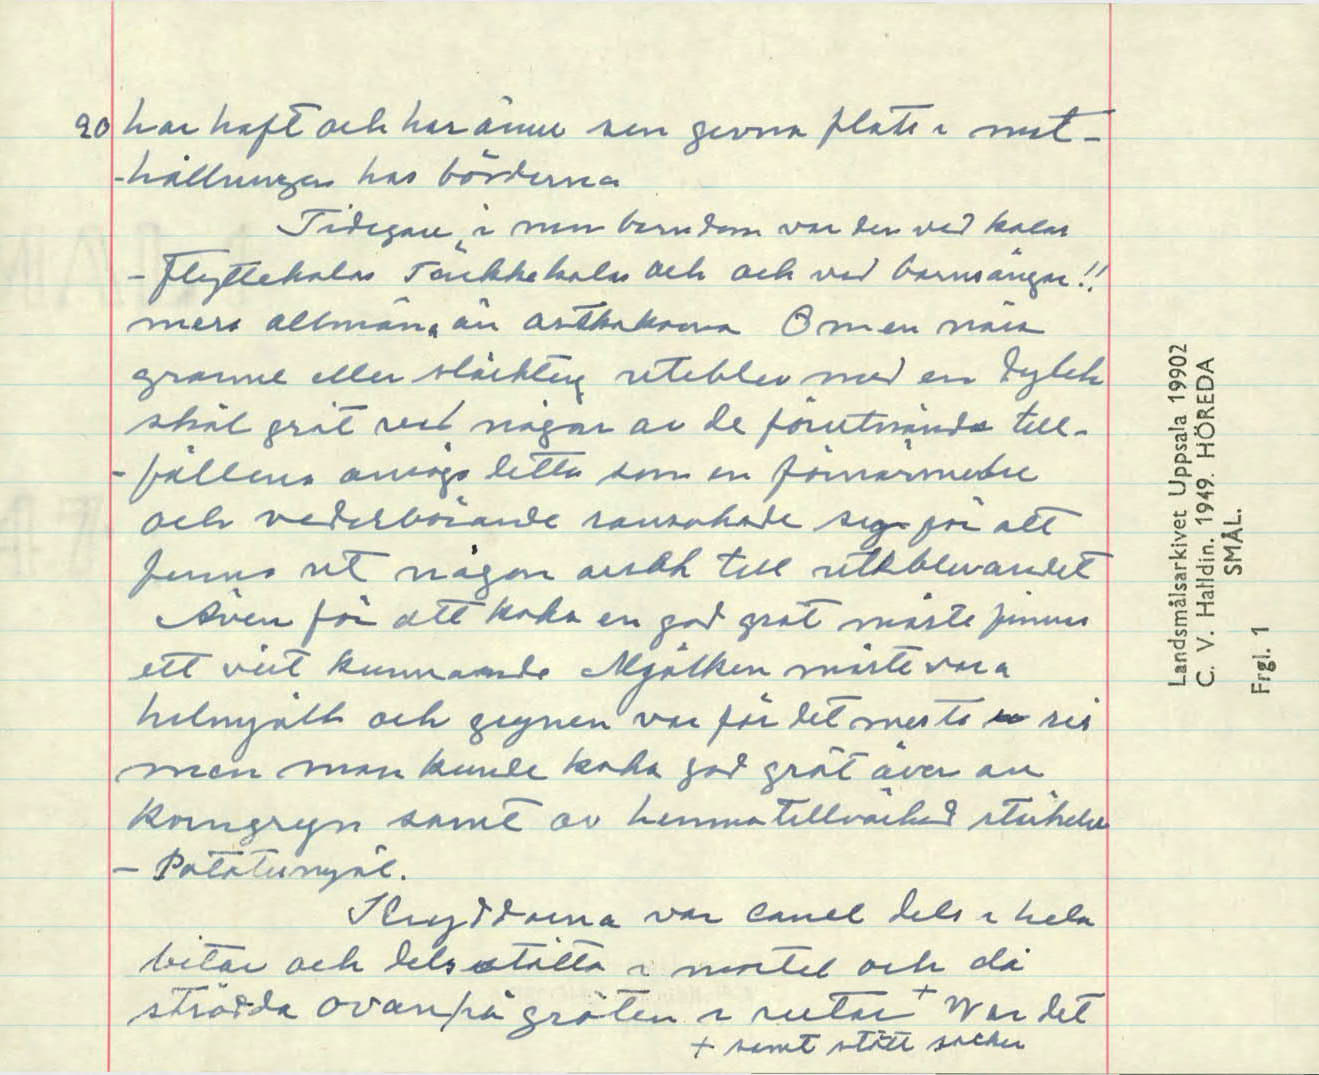 20 har haft och har ännu sen givna plats i mat-
-hållningen hos bönderna
Tidigare, i min barndom var den vid kalas
- Flyttekalas Täckkekalas och och vid barnsängar!!
mera allmän, än ostkakorna Om en nära
granne eller släkting uteblev med en dylik
skål gröt vid någon av de förutnämnda till-
-fällena ansågs detta som en förnärmelse
och vederbörande ransakade sig för att
finna ut någon orsak till uteblivandet
Även för att koka en god gröt måste finnas
ett vist kunnande Mjölken måste vara
helmjölk och grynen var för det mesta ris
men man kunde koka god gröt även av
korngryn samt av hemmatillverkad stärkelse
- Potatismjöl.
Kryddorna var canel dels i hela
bitar och dels stötta i mortel och då
strödda ovanpå gröten i rutar + War det
+ samt stött socker
Landsmålsarkivet Uppsala 19902
C. V. Halldin. 1949. HÖREDA
SMÅL.
Frgl. 1